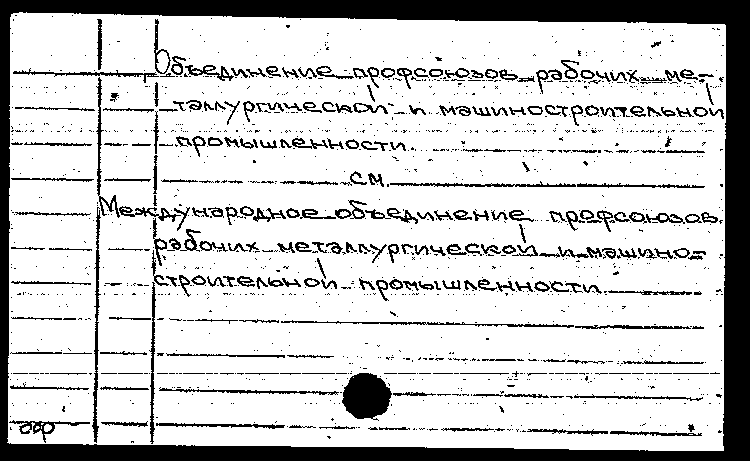 Объединение профсоюзов рабочих ме-
таллургической и машиностроительной
промышленности
см.
Международное объединение профсоюзов
рабочих металлургической и машино-
строительной промышленности